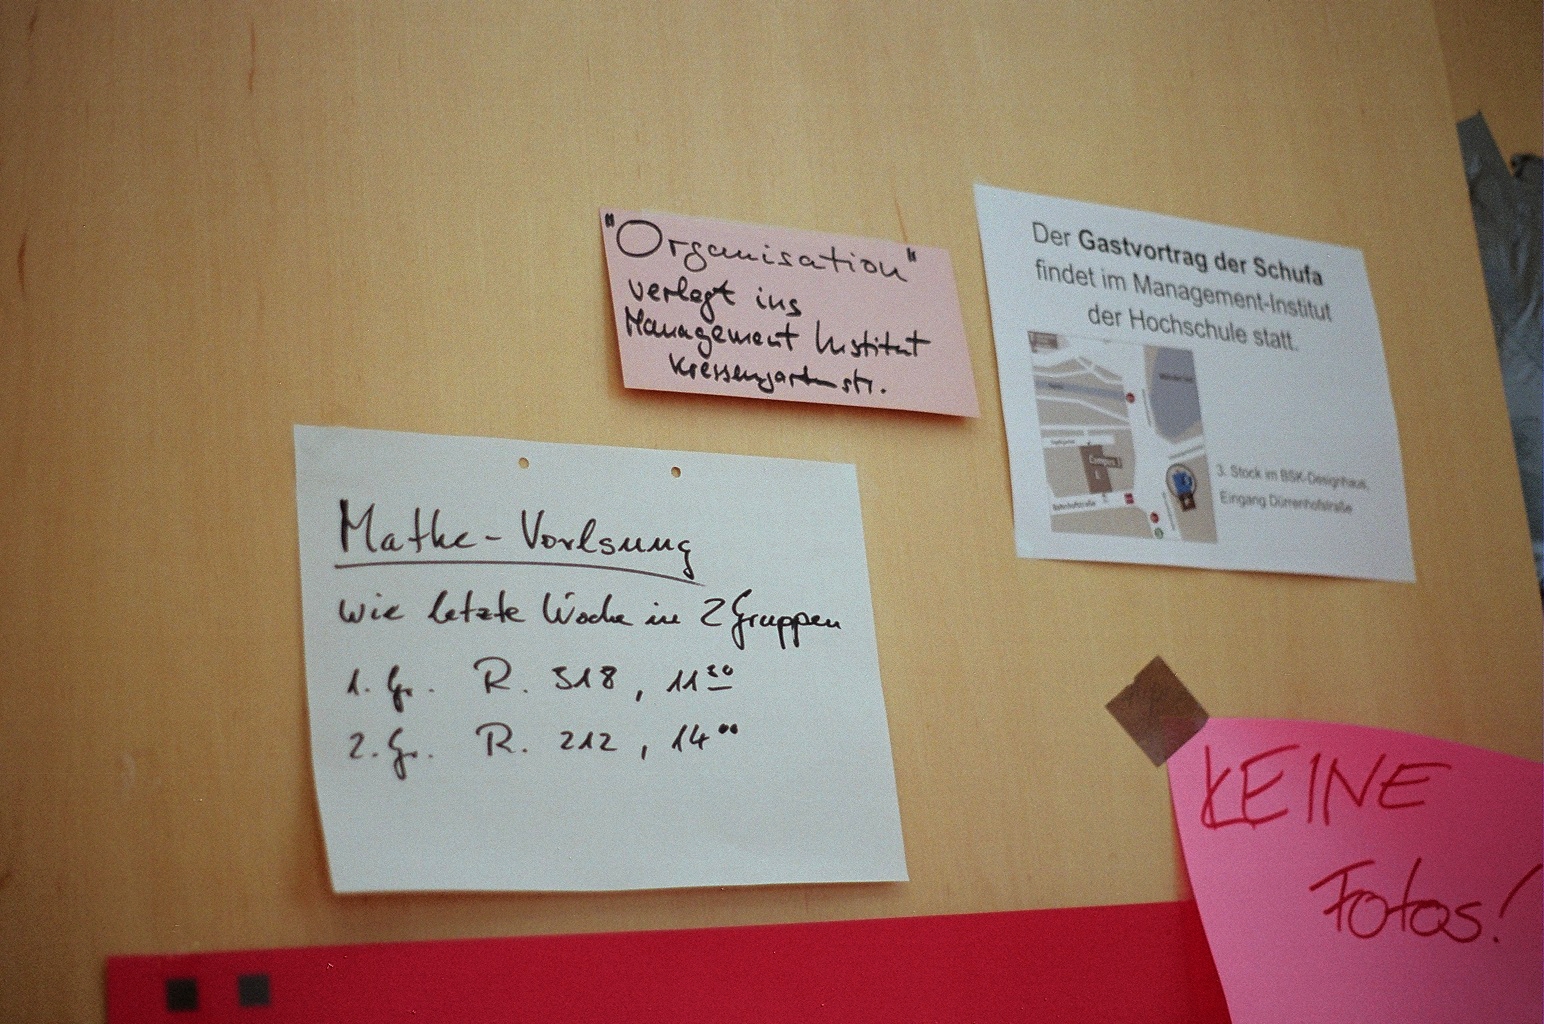 "Organisation"
verlegt ins
Management Institut
Kressengartenstr.
Der Gastvortrag der Schufa
findet im Management-Institut
der Hochschule statt.
3. Stock im BSK-Designhaus,
Eingang Dürrenhofstraße
Bahnhofstraße
Mathe-Vorlsung
wie letzte Woche in 2 Gruppen
1. Gr. R. 318, 11³⁰
2. Gr. R. 212, 14⁰⁰
KEINE
Fotos!